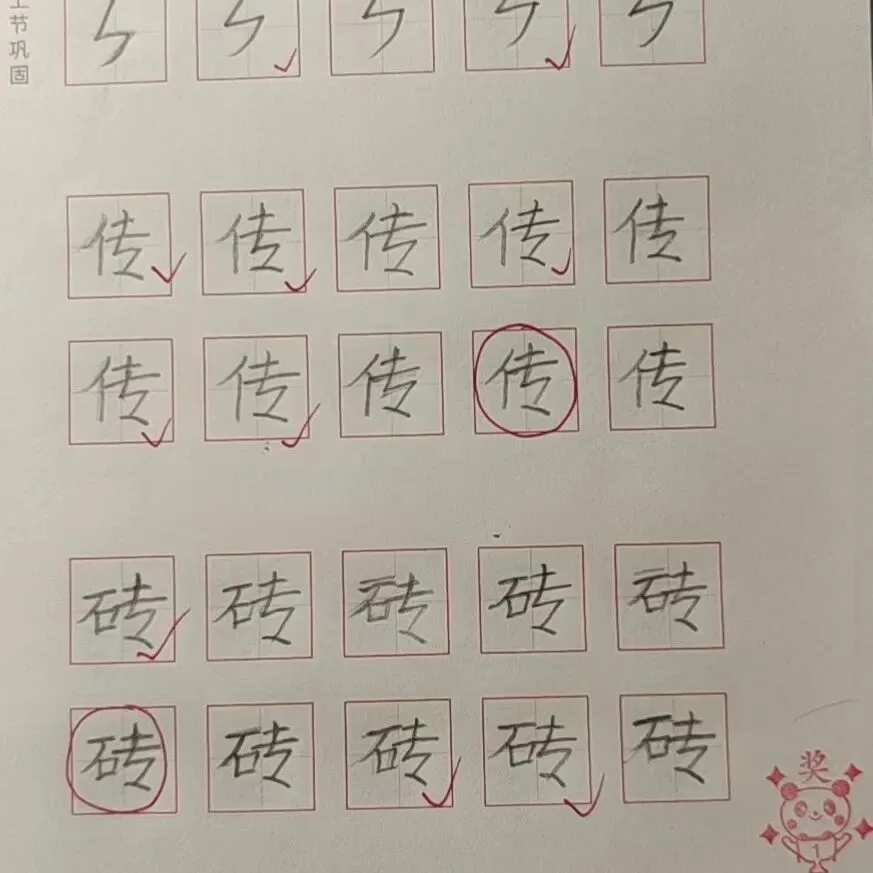 节巩固
传 传 传 传 传
传 传 传 传 传
砖 砖 砖 砖 砖
砖 砖 砖 砖 砖
奖
1